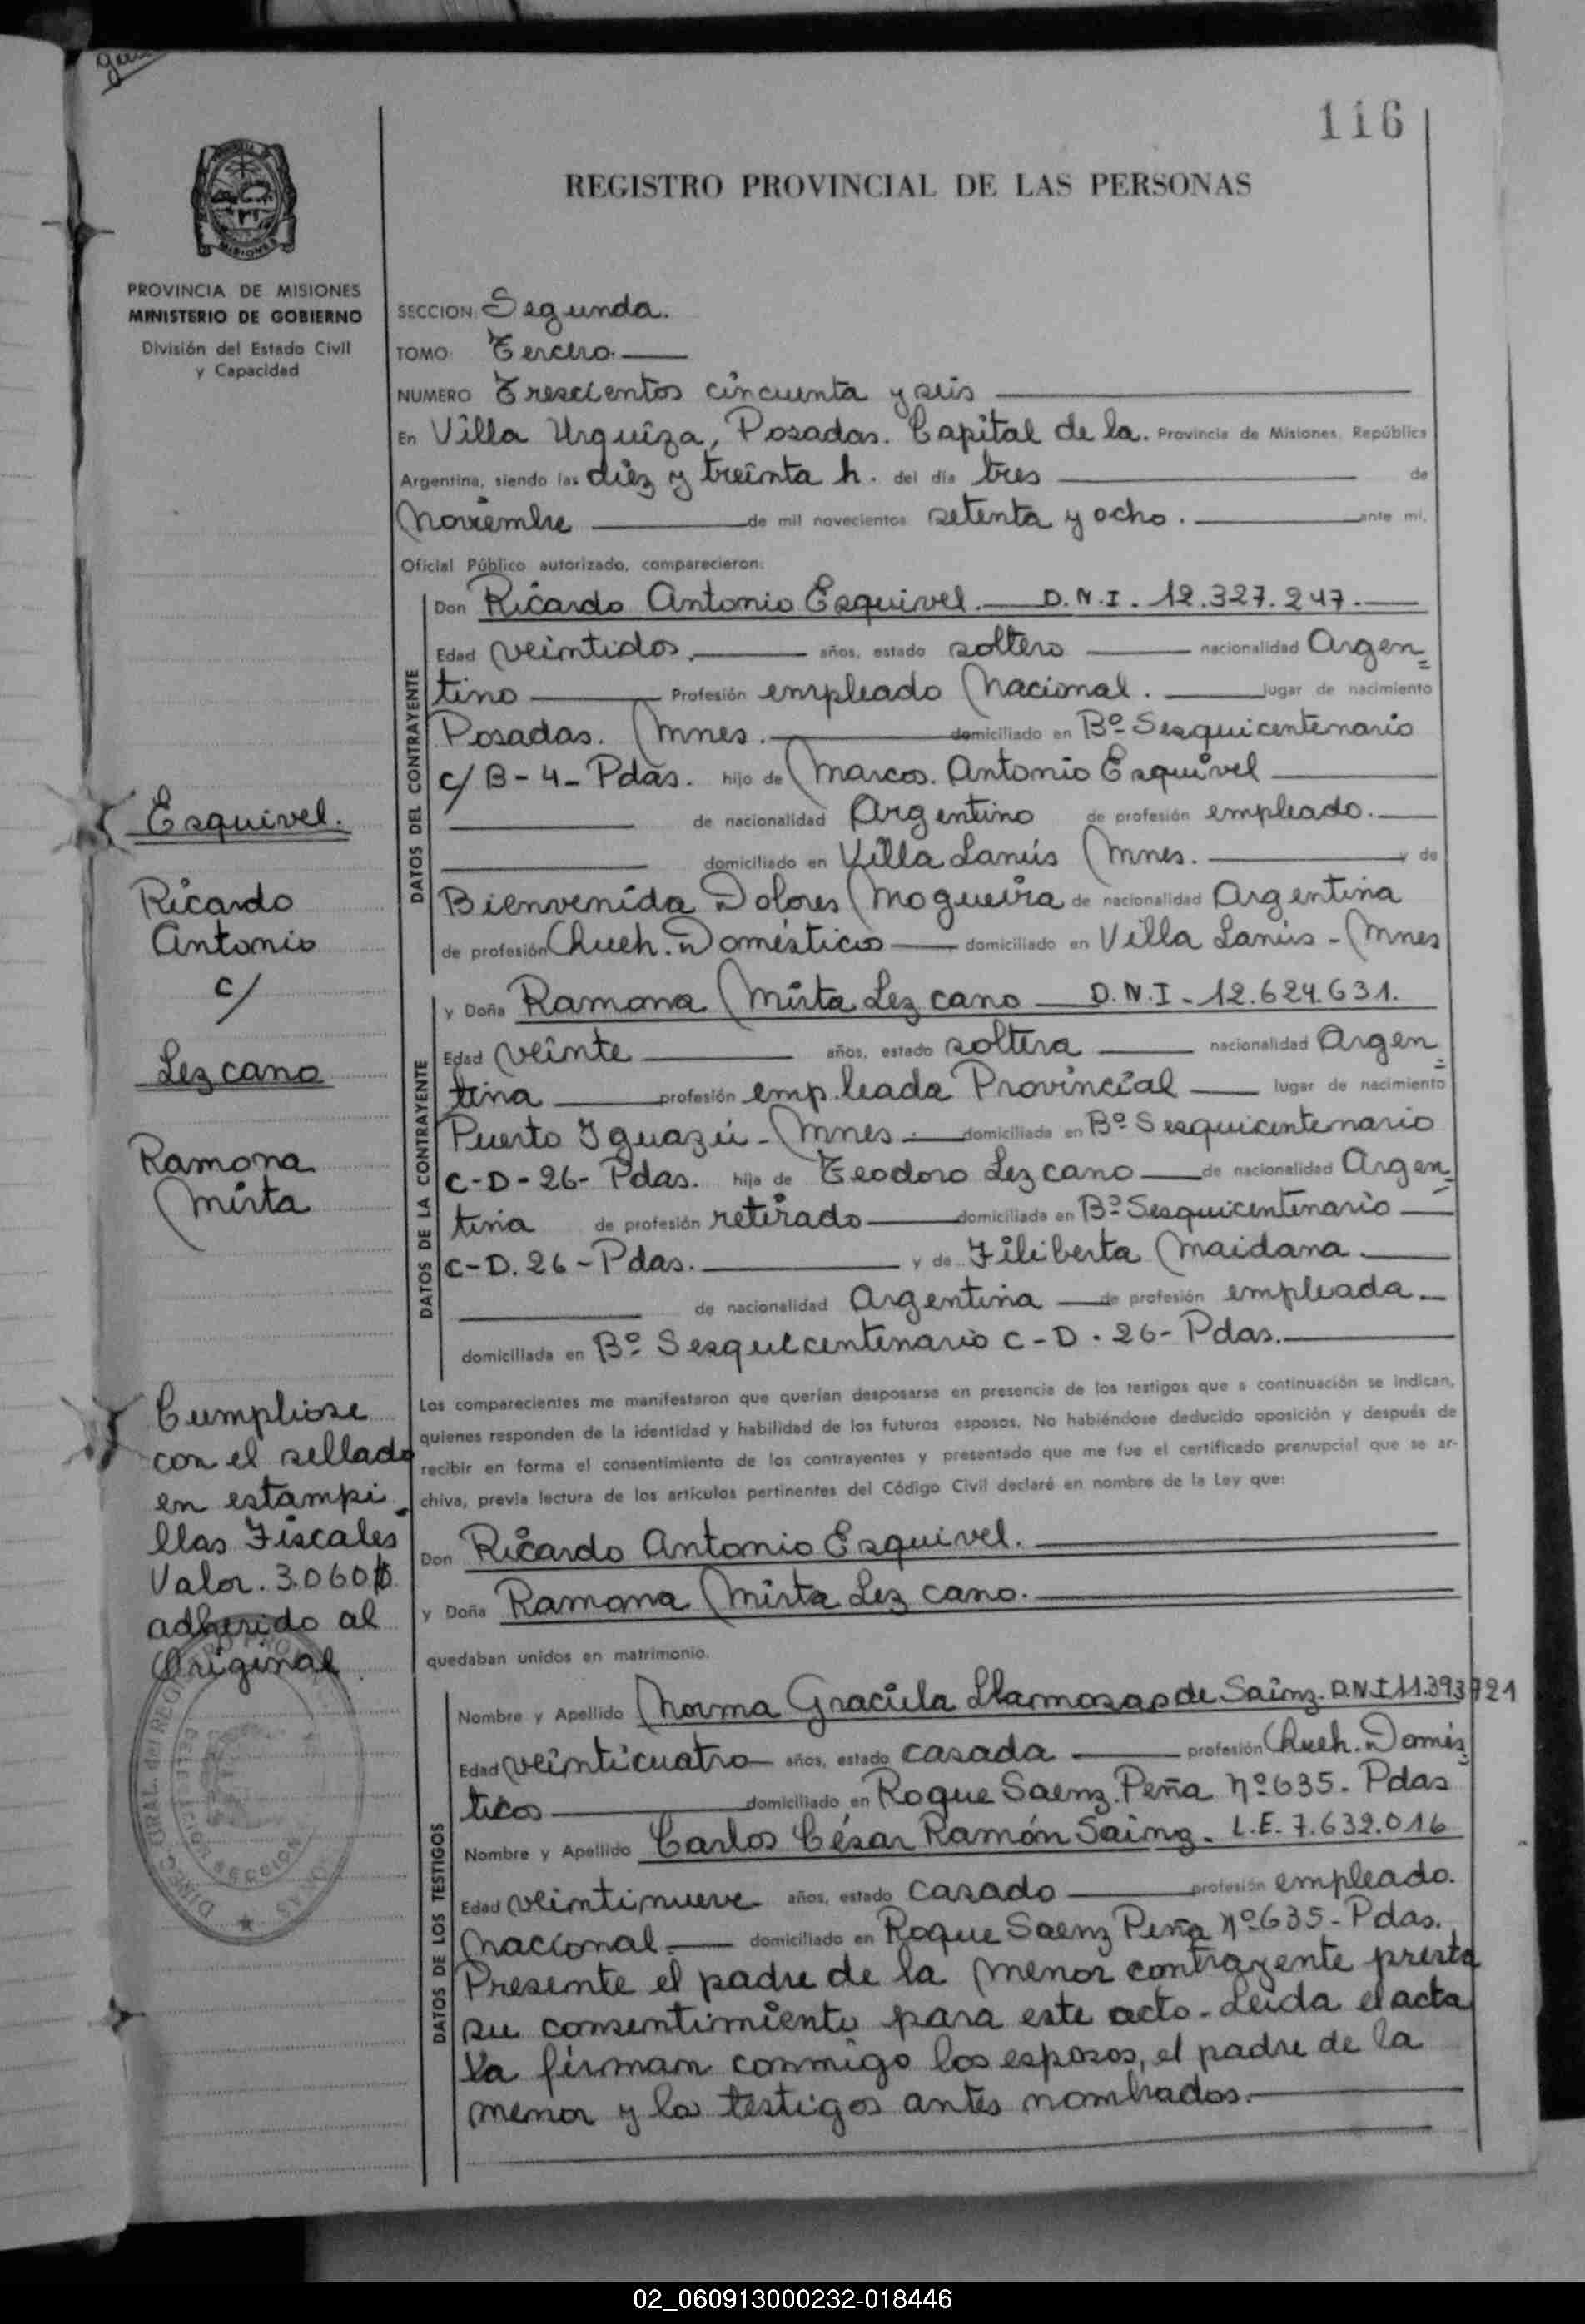 116
REGISTRO PROVINCIAL DE LAS PERSONAS
MISIONES
PROVINCIA DE MISIONES
MINISTERIO DE GOBIERNO
División del Estado Civil
y Capacidad
SECCION: Segunda.
TOMO: Tercero.
NUMERO Trescientos cincuenta y seis
En Villa Urquiza, Posadas. Capital de la. Provincia de Misiones, República
Argentina, siendo las diez y treinta h. del día tres de
Noviembre de mil novecientos setenta y ocho. ante mí,
Oficial Público autorizado, comparecieron:
DATOS DEL CONTRAYENTE
Don Ricardo Antonio Esquivel. D.N.I. 12.327.247.
Edad veintidos. años, estado soltero nacionalidad Argen
tino Profesión empleado Nacional. lugar de nacimiento
Posadas. Mnes. domiciliado en Bº Sesquicentenario
c/ B-4- Pdas. hijo de Marcos. Antonio Esquivel
de nacionalidad Argentino de profesión empleado.
domiciliado en Villa Lanús Mnes. y de
Bienvenida Dolores Mogueira de nacionalidad Argentina
de profesión Queh. Domésticos domiciliado en Villa Lanús - Mnes
DATOS DE LA CONTRAYENTE
y Doña Ramona Mirta Lezcano D.N.I - 12.624.631.
Edad veinte años, estado soltera nacionalidad Argen
tina profesión empleada Provincial lugar de nacimiento
Puerto Iguazú - Mnes. domiciliada en Bº Sesquicentenario
C-D-26- Pdas. hija de Teodoro Lezcano de nacionalidad Argen
tina de profesión retirado domiciliada en Bº Sesquicentenario
C-D.26- Pdas. y de Filiberta Maidana.
de nacionalidad Argentina de profesión empleada
domiciliada en Bº Sesquicentenario C-D.26- Pdas.
Los comparecientes me manifestaron que querían desposarse en presencia de los testigos que a continuación se indican,
quienes responden de la identidad y habilidad de los futuros esposos. No habiéndose deducido oposición y después de
recibir en forma el consentimiento de los contrayentes y presentado que me fue el certificado prenupcial que se ar-
chiva, previa lectura de los artículos pertinentes del Código Civil declaré en nombre de la Ley que:
Don Ricardo Antonio Esquivel.
y Doña Ramona Mirta Lezcano.
quedaban unidos en matrimonio.
DATOS DE LOS TESTIGOS
Nombre y Apellido Norma Graciela Llamosas de Sainz. D.N.I 11.393721
Edad veinticuatro años, estado casada profesión Queh. Domés
ticos domiciliado en Roque Saenz Peña Nº 635- Pdas
Nombre y Apellido Carlos César Ramón Sainz. L.E. 7.632.016
Edad veintinueve años, estado casado profesión empleado.
Nacional. domiciliado en Roque Saenz Peña Nº 635- Pdas.
Presente el padre de la menor contrayente presta
su consentimiento para este acto- Leida el acta
la firman conmigo los esposos, el padre de la
menor y los testigos antes nombrados.
Esquivel.
Ricardo
Antonio
c/
Lezcano
Ramona
Mirta
Cumpliose
con el sellado
en estampi
llas Fiscales
Valor. 3.060$
adherido al
Original
02_060913000232-018446